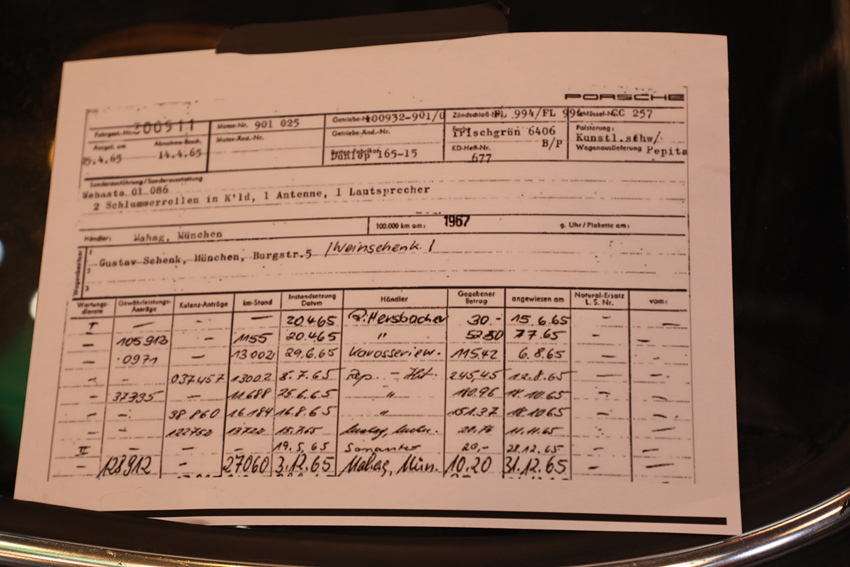 PORSCHE
Fahrgest.-Nr. 300511 Motor-Nr. 901 025 Getriebe-Nr. 100932-901/0 Zündschloß-Nr. FL 994/FL 994 Schlüssel-Nr. CC 257
Ausgel. am 14.4.65 Motor-Änd.-Nr. Getriebe-Änd.-Nr. Irischgrün 6406 B/P Polsterung: Kunstl.schw/
Dunlop 165-15 KD-Heft-Nr. 677 Wagenauslieferung Pepita
Sonderausführung/Sonderausstattung
Webasto 01 086
2 Schlummerrollen in K'ld, 1 Antenne, 1 Lautsprecher
Händler: Mahag, München 100.000 km am: 1967 g. Uhr / Plakette am:
Wagenbesitzer 1 Gustav Schenk, München, Burgstr.5 /Weinschenk/
2
3
Wartungsdienste Gewährleistungs-Anträge Kulanz-Anträge km-Stand Instandsetzung Datum Händler Gegebener Betrag angewiesen am Natural-Ersatz L. S. Nr. vom:
I — — 20.4.65 30.- 15.6.65 — —
— 105913 — 1155 20.4.65 " 52.50 7.7.65 — —
— 0971 — 13002 29.6.65 115.42 6.8.65 — —
— — 037457 13002 8.7.65 245,45 12.8.65 — —
— 37395 — 11688 25.6.65 " 180.96 18.10.65 — —
— — 38860 16184 16.8.65 " 151.37 18.10.65 — —
— — 122752 — —
II — — 19.5.65 20,- 28.12.65 — —
— 128912 — 27060 3.12.65 Mahag, Mün. 10.20 31.12.65 — —